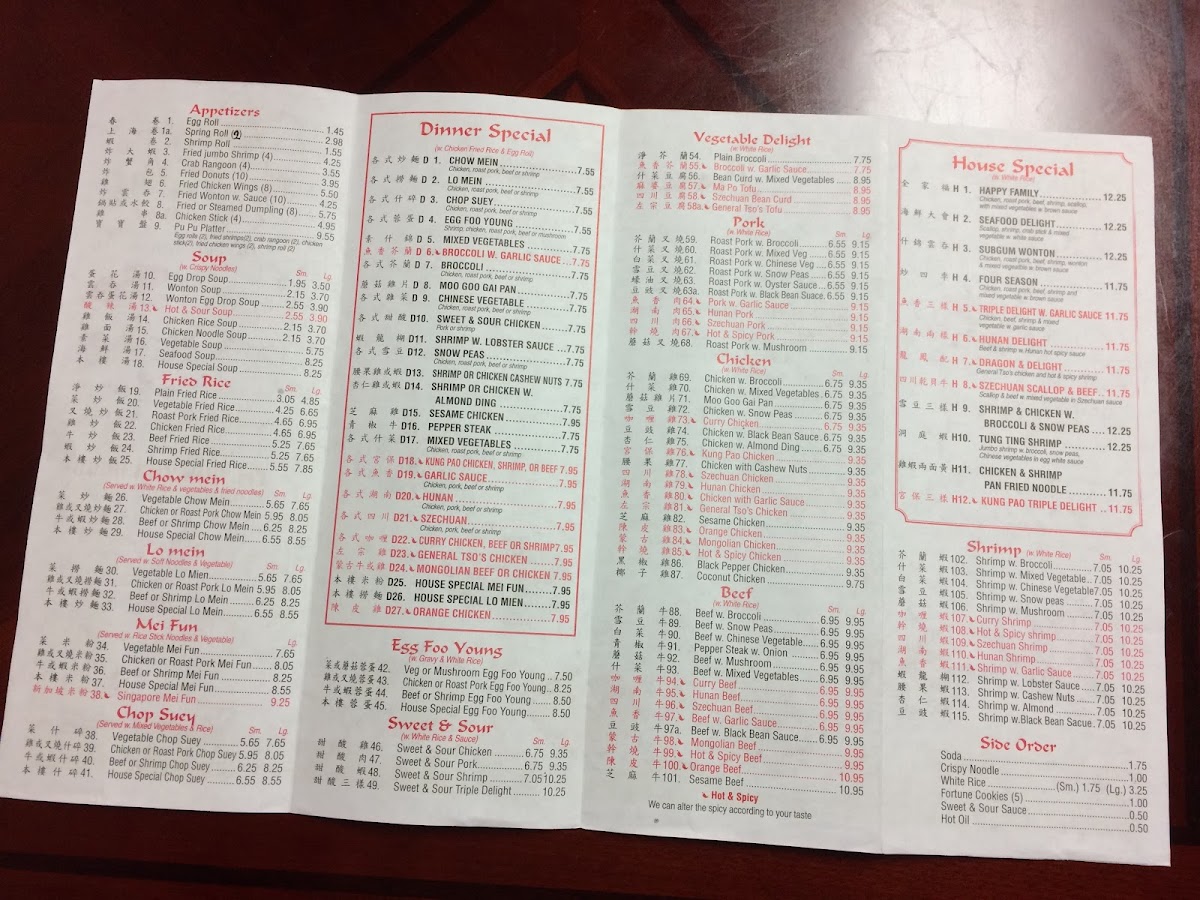 Appetizers
春 卷 1. Egg Roll 1.45
上 海 卷 1a. Spring Roll (2) 2.98
蝦 卷 2. Shrimp Roll 1.55
炸 大 蝦 3. Fried jumbo Shrimp (4) 4.25
炸 蟹 角 4. Crab Rangoon (4) 3.55
炸 包 5. Fried Donuts (10) 3.95
雞 翅 6. Fried Chicken Wings (8) 5.50
炸 雲 吞 7. Fried Wonton w. Sauce (10) 4.25
鍋貼或水餃 8. Fried or Steamed Dumpling (8) 5.75
雞 串 8a. Chicken Stick (4) 4.95
寶 寶 盤 9. Pu Pu Platter 9.55
Egg rolls (2), fried shrimps(2), crab rangoon (2), chicken
stick(2), fried chicken wings (2), shrimp roll (2)
Soup
(w. Crispy Noodles) Sm. Lg.
蛋 花 湯 10. Egg Drop Soup 1.95 3.50
雲 吞 湯 11. Wonton Soup 2.15 3.70
雲吞蛋花湯 12. Wonton Egg Drop Soup 2.55 3.90
酸 辣 湯 13. Hot & Sour Soup 2.55 3.90
雞 飯 湯 14. Chicken Rice Soup 2.15 3.70
雞 麵 湯 15. Chicken Noodle Soup 2.15 3.70
素 菜 湯 16. Vegetable Soup 5.75
海 鮮 湯 17. Seafood Soup 8.25
本 樓 湯 18. House Special Soup 8.25
Fried Rice Sm. Lg.
淨 炒 飯 19. Plain Fried Rice 3.05 4.85
菜 炒 飯 20. Vegetable Fried Rice 4.25 6.65
叉 燒 炒 飯 21. Roast Pork Fried Rice 4.65 6.95
雞 炒 飯 22. Chicken Fried Rice 4.65 6.95
牛 炒 飯 23. Beef Fried Rice 5.25 7.65
蝦 炒 飯 24. Shrimp Fried Rice 5.25 7.65
本 樓 炒 飯 25. House Special Fried Rice 5.55 7.85
Chow mein
(Served w. White Rice & vegetables & fried noodles) Sm. Lg.
菜 炒 麵 26. Vegetable Chow Mein 5.65 7.65
雞或叉燒炒麵 27. Chicken or Roast Pork Chow Mein 5.95 8.05
牛或蝦炒麵 28. Beef or Shrimp Chow Mein 6.25 8.25
本 樓 炒 麵 29. House Special Chow Mein 6.55 8.55
Lo mein
(Served w. Soft Noodles & Vegetable) Sm. Lg.
菜 撈 麵 30. Vegetable Lo Mein 5.65 7.65
雞或叉燒撈麵 31. Chicken or Roast Pork Lo Mein 5.95 8.05
牛或蝦撈麵 32. Beef or Shrimp Lo Mein 6.25 8.25
本 樓 炒 麵 33. House Special Lo Mein 6.55 8.55
Mei Fun
(Served w. Rice Stick Noodles & Vegetable) Lg.
菜 米 粉 34. Vegetable Mei Fun 7.65
雞或叉燒米粉 35. Chicken or Roast Pork Mei Fun 8.05
牛或蝦米粉 36. Beef or Shrimp Mei Fun 8.25
本 樓 米 粉 37. House Special Mei Fun 8.55
新加坡米粉 38. Singapore Mei Fun 9.25
Chop Suey
(Served w. Mixed Vegetables & Rice) Sm. Lg.
菜 什 碎 38. Vegetable Chop Suey 5.65 7.65
雞或叉燒什碎 39. Chicken or Roast Pork Chop Suey 5.95 8.05
牛或蝦什碎 40. Beef or Shrimp Chop Suey 6.25 8.25
本 樓 什 碎 41. House Special Chop Suey 6.55 8.55
Dinner Special
(w. Chicken Fried Rice & Egg Roll)
各式炒麵 D 1. CHOW MEIN 7.55
Chicken, roast pork, beef or shrimp
各式撈麵 D 2. LO MEIN 7.55
Chicken, roast pork, beef or shrimp
各式什碎 D 3. CHOP SUEY 7.55
Chicken, roast pork, beef or shrimp
各式蓉蛋 D 4. EGG FOO YOUNG 7.55
Shrimp, chicken, roast pork, beef or mushroom
素 什 錦 D 5. MIXED VEGETABLES 7.55
魚香芥蘭 D 6. BROCCOLI W. GARLIC SAUCE 7.55
各式芥蘭 D 7. BROCCOLI 7.75
Chicken, roast pork, beef or shrimp
蘑菇雞片 D 8. MOO GOO GAI PAN 7.75
各式雜菜 D 9. CHINESE VEGETABLE 7.75
Chicken, roast pork, beef or shrimp
各式甜酸 D10. SWEET & SOUR CHICKEN 7.75
Pork or shrimp
蝦 龍 糊 D11. SHRIMP W. LOBSTER SAUCE 7.75
各式雪豆 D12. SNOW PEAS 7.75
Chicken, roast pork, beef or shrimp
腰果雞或蝦 D13. SHRIMP OR CHICKEN CASHEW NUTS 7.75
杏仁雞或蝦 D14. SHRIMP OR CHICKEN W.
ALMOND DING 7.75
芝 麻 雞 D15. SESAME CHICKEN 7.75
青 椒 牛 D16. PEPPER STEAK 7.75
各式什菜 D17. MIXED VEGETABLES 7.75
Chicken, roast pork, beef or shrimp
各式宮保 D18. KUNG PAO CHICKEN, SHRIMP, OR BEEF 7.95
各式魚香 D19. GARLIC SAUCE 7.95
Chicken, pork, beef or shrimp
各式湖南 D20. HUNAN 7.95
Chicken, pork, beef or shrimp
各式四川 D21. SZECHUAN 7.95
Chicken, pork, beef or shrimp
各式咖喱 D22. CURRY CHICKEN, BEEF OR SHRIMP 7.95
左 宗 雞 D23. GENERAL TSO'S CHICKEN 7.95
蒙古牛或雞 D24. MONGOLIAN BEEF OR CHICKEN 7.95
本樓米粉 D25. HOUSE SPECIAL MEI FUN 7.95
本樓撈麵 D26. HOUSE SPECIAL LO MIEN 7.95
陳 皮 雞 D27. ORANGE CHICKEN 7.95
Egg Foo Young
(w. Gravy & White Rice) Lg.
菜或蘑菇蓉蛋 42. Veg or Mushroom Egg Foo Young 7.50
雞或叉蓉蛋 43. Chicken or Roast Pork Egg Foo Young 8.25
牛或蝦蓉蛋 44. Beef or Shrimp Egg Foo Young 8.50
本 樓 蓉 蛋 45. House Special Egg Foo Young 8.50
Sweet & Sour
(w. White Rice & Sauce) Sm. Lg.
甜 酸 雞 46. Sweet & Sour Chicken 6.75 9.35
甜 酸 肉 47. Sweet & Sour Pork 6.75 9.35
甜 酸 蝦 48. Sweet & Sour Shrimp 7.05 10.25
甜 酸 三 樣 49. Sweet & Sour Triple Delight 10.25
Vegetable Delight
(w. White Rice) Lg.
淨 芥 蘭 54. Plain Broccoli 7.75
魚香芥蘭 55. Broccoli w. Garlic Sauce 7.75
什菜豆腐 56. Bean Curd w. Mixed Vegetables 8.95
麻婆豆腐 57. Ma Po Tofu 8.95
四川豆腐 58. Szechuan Bean Curd 8.95
左宗豆腐 58a. General Tso's Tofu 8.95
Pork
(w. White Rice) Sm. Lg.
芥蘭叉燒 59. Roast Pork w. Broccoli 6.55 9.15
什菜叉燒 60. Roast Pork w. Mixed Veg 6.55 9.15
白菜叉燒 61. Roast Pork w. Chinese Veg 6.55 9.15
雪豆叉燒 62. Roast Pork w. Snow Peas 6.55 9.15
蠔油叉燒 63. Roast Pork w. Oyster Sauce 6.55 9.15
豆豉叉燒 63a. Roast Pork w. Black Bean Suace. 6.55 9.15
魚 香 肉 64. Pork w. Garlic Sauce 9.15
湖 南 肉 65. Hunan Pork 9.15
四 川 肉 66. Szechuan Pork 9.15
幹 燒 肉 67. Hot & Spicy Pork 9.15
蘑菇叉燒 68. Roast Pork w. Mushroom 9.15
Chicken
(w. White Rice) Sm. Lg.
芥 蘭 雞 69. Chicken w. Broccoli 6.75 9.35
什 菜 雞 70. Chicken w. Mixed Vegetables 6.75 9.35
蘑菇雞片 71. Moo Goo Gai Pan 6.75 9.35
雪 豆 雞 72. Chicken w. Snow Peas 6.75 9.35
咖 喱 雞 73. Curry Chicken 6.75 9.35
豆 豉 雞 74. Chicken w. Black Bean Sauce 6.75 9.35
杏 仁 雞 75. Chicken w. Almond Ding 6.75 9.35
宮 保 雞 76. Kung Pao Chicken 9.35
腰 果 雞 77. Chicken with Cashew Nuts 9.35
四 川 雞 78. Szechuan Chicken 9.35
湖 南 雞 79. Hunan Chicken 9.35
魚 香 雞 80. Chicken with Garlic Sauce 9.35
左 宗 雞 81. General Tso's Chicken 9.35
芝 麻 雞 82. Sesame Chicken 9.35
陳 皮 雞 83. Orange Chicken 9.35
蒙 古 雞 84. Mongolian Chicken 9.35
幹 燒 雞 85. Hot & Spicy Chicken 9.35
黑 椒 雞 86. Black Pepper Chicken 9.35
椰 子 雞 87. Coconut Chicken 9.75
Beef
(w. White Rice) Sm. Lg.
芥 蘭 牛 88. Beef w. Broccoli 6.95 9.95
雪 豆 牛 89. Beef w. Snow Peas 6.95 9.95
白 菜 牛 90. Beef w. Chinese Vegetable 6.95 9.95
青 椒 牛 91. Pepper Steak w. Onion 6.95 9.95
蘑 菇 牛 92. Beef w. Mushroom 6.95 9.95
什 菜 牛 93. Beef w. Mixed Vegetables 6.95 9.95
咖 喱 牛 94. Curry Beef 6.95 9.95
湖 南 牛 95. Hunan Beef 6.95 9.95
四 川 牛 96. Szechuan Beef 6.95 9.95
魚 香 牛 97. Beef w. Garlic Sauce 6.95 9.95
豆 豉 牛 97a. Beef w. Black Bean Sauce 6.95 9.95
蒙 古 牛 98. Mongolian Beef 9.95
幹 燒 牛 99. Hot & Spicy Beef 9.95
陳 皮 牛 100. Orange Beef 10.95
芝 麻 牛 101. Sesame Beef 10.95
Hot & Spicy
We can alter the spicy according to your taste
House Special
(w. White Rice)
全 家 福 H 1. HAPPY FAMILY 12.25
Chicken, roast pork, beef, shrimp, scallop,
with mixed vegetables w brown sauce
海鮮大會 H 2. SEAFOOD DELIGHT 12.25
Scallop, shrimp, crab stick & mixed
vegetable w. white sauce
什錦雲吞 H 3. SUBGUM WONTON 12.25
Chicken, roast pork, beef, shrimp, wonton
& mixed vegetable w. brown sauce
炒 四 季 H 4. FOUR SEASON 11.75
Chicken, roast pork, beef, shrimp and
mixed vegetable w. brown sauce
魚香三樣 H 5. TRIPLE DELIGHT W. GARLIC SAUCE 11.75
Chicken, beef, shrimp & mixed
vegetable w. garlic sauce
湖南兩樣 H 6. HUNAN DELIGHT 11.75
Beef & shrimp w. Hunan hot spicy sauce
龍 鳳 配 H 7. DRAGON & DELIGHT 11.75
General Tso's chicken and hot & spicy shrimp
四川乾貝牛 H 8. SZECHUAN SCALLOP & BEEF 11.75
Scallop & beef w. mixed vegetable in Szechuan sauce
雪豆三樣 H 9. SHRIMP & CHICKEN W.
BROCCOLI & SNOW PEAS 12.25
洞 庭 蝦 H10. TUNG TING SHRIMP 12.25
Jumbo shrimp w. broccoli, snow peas,
Chinese vegetables in egg white sauce
雞蝦兩面黃 H11. CHICKEN & SHRIMP
PAN FRIED NOODLE 11.75
宮保三樣 H12. KUNG PAO TRIPLE DELIGHT 11.75
Shrimp (w. White Rice) Sm. Lg.
芥 蘭 蝦 102. Shrimp w. Broccoli 7.05 10.25
什 菜 蝦 103. Shrimp w. Mixed Vegetable 7.05 10.25
白 菜 蝦 104. Shrimp w. Chinese Vegetable 7.05 10.25
雪 豆 蝦 105. Shrimp w. Snow peas 7.05 10.25
蘑 菇 蝦 106. Shrimp w. Mushroom 7.05 10.25
咖 喱 蝦 107. Curry Shrimp 7.05 10.25
幹 燒 蝦 108. Hot & Spicy shrimp 7.05 10.25
四 川 蝦 109. Szechuan Shrimp 7.05 10.25
湖 南 蝦 110. Hunan Shrimp 7.05 10.25
魚 香 蝦 111. Shrimp w. Garlic Sauce 7.05 10.25
蝦 龍 糊 112. Shrimp w. Lobster Sauce 7.05 10.25
腰 果 蝦 113. Shrimp w. Cashew Nuts 7.05 10.25
杏 仁 蝦 114. Shrimp w. Almond 7.05 10.25
豆 豉 蝦 115. Shrimp w.Black Bean Sacue 7.05 10.25
Side Order
Soda 1.75
Crispy Noodle 1.00
White Rice (Sm.) 1.75 (Lg.) 3.25
Fortune Cookies (5) 1.00
Sweet & Sour Sauce 0.50
Hot Oil 0.50